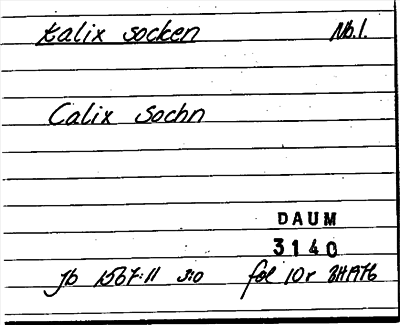 Kalix socken Nb.l.
Calix Sochn
DAUM
3140
Jb 1567:11 s:o fol 10r